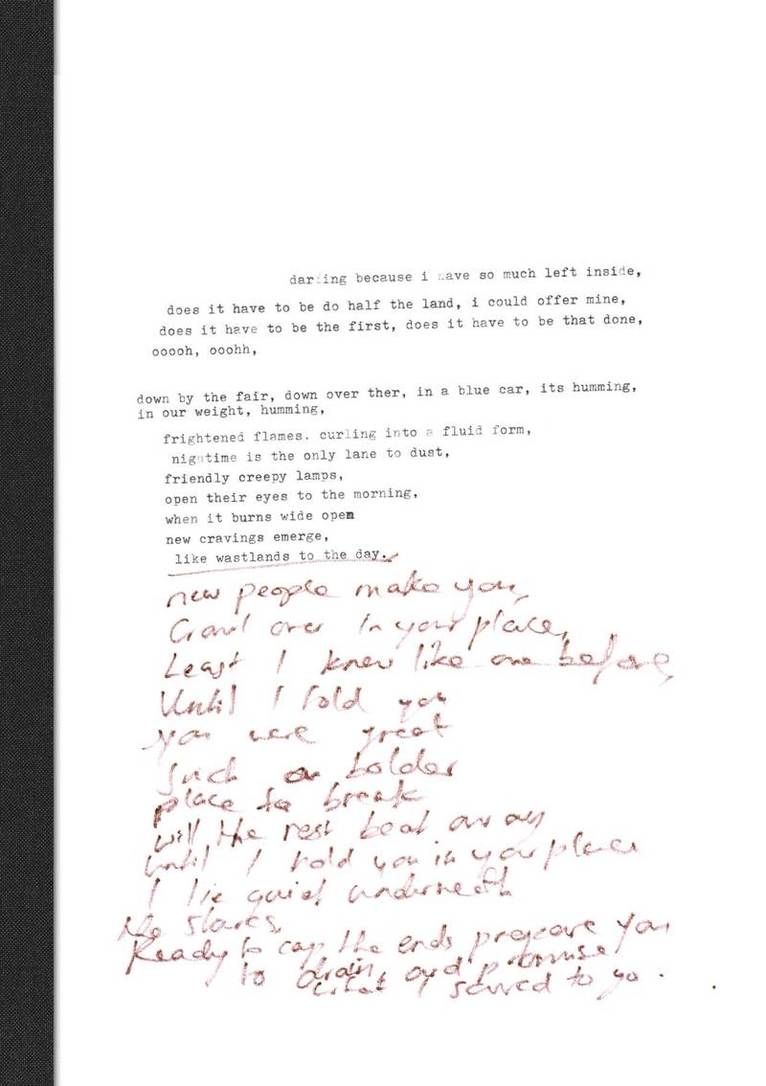 darling because i have so much left inside,
does it have to be do half the land, i could offer mine,
does it have to be the first, does it have to be that done,
ooooh, ooohh,
down by the fair, down over ther, in a blue car, its humming,
in our weight, humming,
frightened flames. curling into a fluid form,
nightime is the only lane to dust,
friendly creepy lamps,
open their eyes to the morning,
when it burns wide open
new cravings emerge,
like wastlands to the day.
new people make you,
Crawl over in your place,
Least I knew like one before,
Until I told you
you were great
Such a bolder
place to break
will the rest beat away
until I told you in your place
I lie quiet underneath
the stares,
Ready to cap the ends prepare you
to drain and promise
what I saved to go.